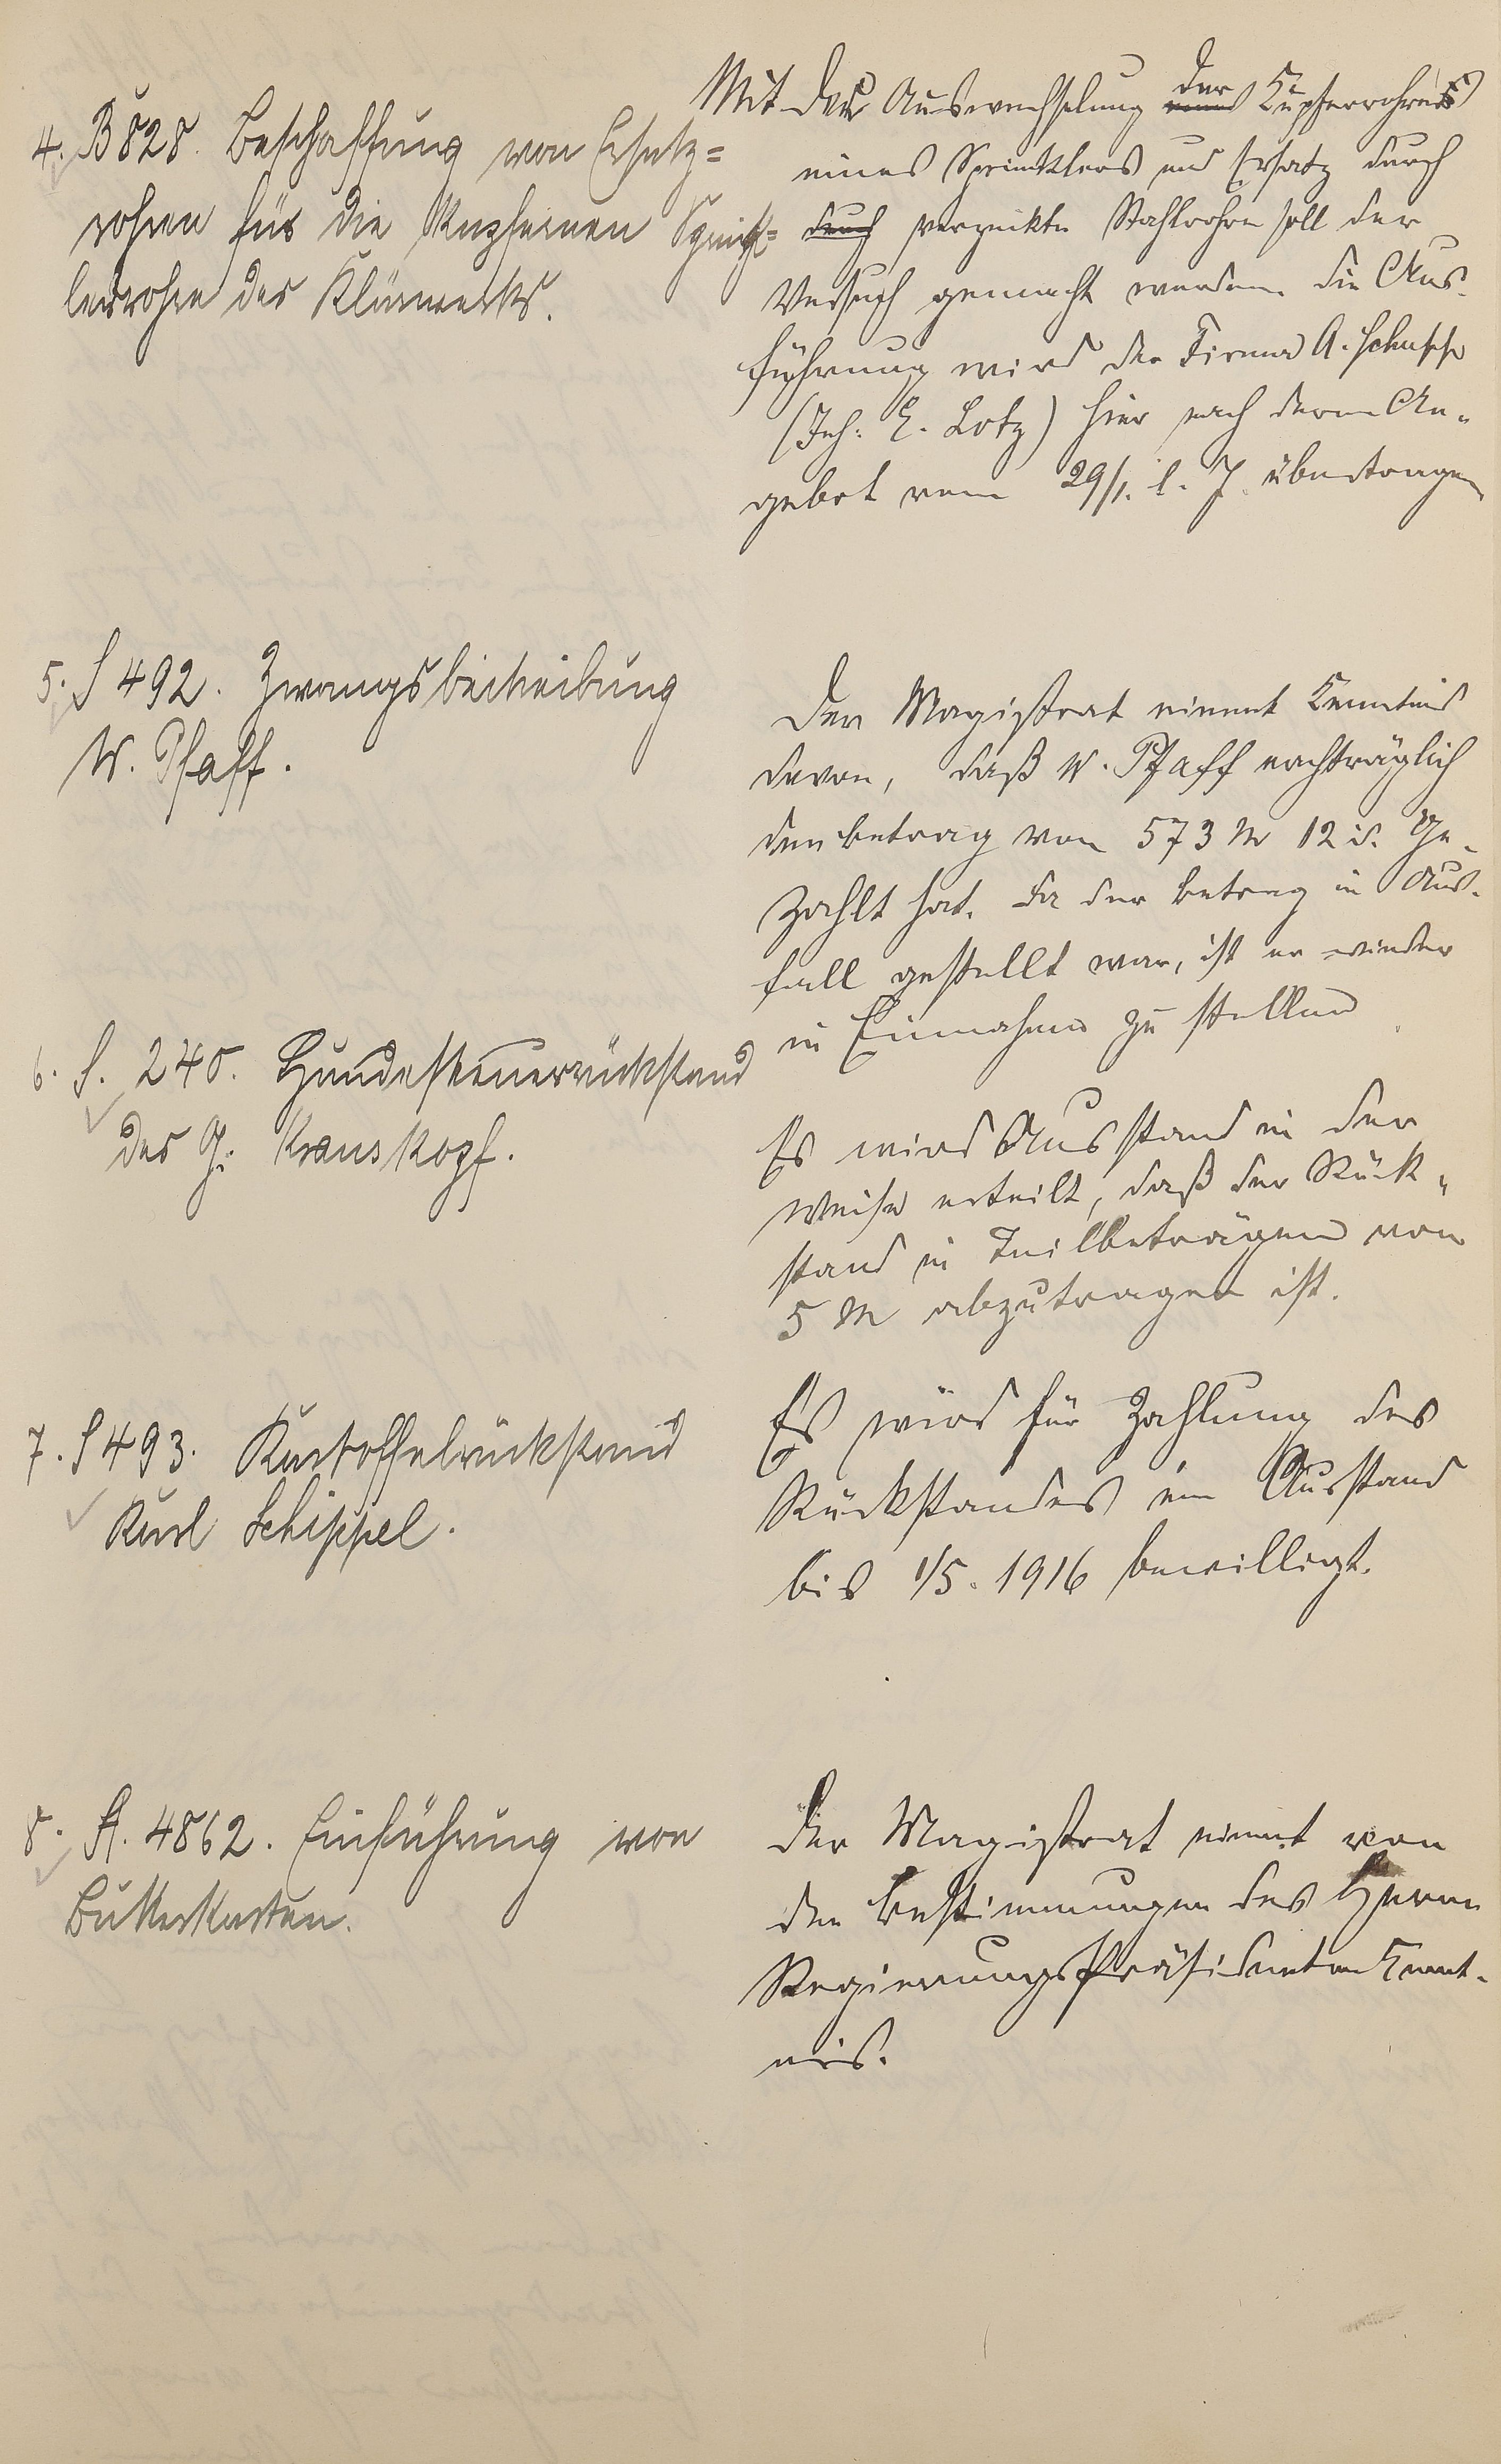 4. B 828. Beschaffung von Ersatz=
rohren für die kupfernen Sprink=
lerrohre des Klärwerks.
Mit der Auswechselung der Kupferrohre
eines Sprinklers und Ersatz durch
durch verzinkte Stahlrohre soll der
Versuch gemacht werden. Die Aus-
führung wird der Firma A.
(Inh: E. Lotz) hier nach deren An-
gebot vom 29/1. l. J. übertragen
5. S 492. Zwangsbeitreibung
W. Pfaff.
Der Magistrat nimmt Kenntnis
davon, daß W. Pfaff nachträglich
den Betrag von 573 M 12 ge-
zahlt hat. Da der Betrag in Aus-
fall gestellt war, ist er wieder
in Einnahme zu stellen
6. S. 240. Hundesteuerrückstand
des G. Krauskopf.
Es wird Ausstand in der
Weise erteilt, daß der Rück-
stand in Teilbeträgen von
5 M abzutragen ist.
7. S 493. Kartoffelrückstand
Karl Schippel.
Es wird für Zahlung des
Rückstandes ein Ausstand
bis 1/5. 1916 bewilligt.
8. A. 4862. Einführung von
Butterkarten.
Der Magistrat nimmt von
den Bestimmungen des Herrn
Regierungspräsidenten Kennt-
nis.